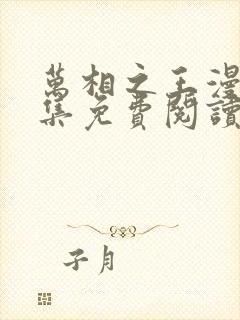 萬相之王漫
集免費閱讀
子月